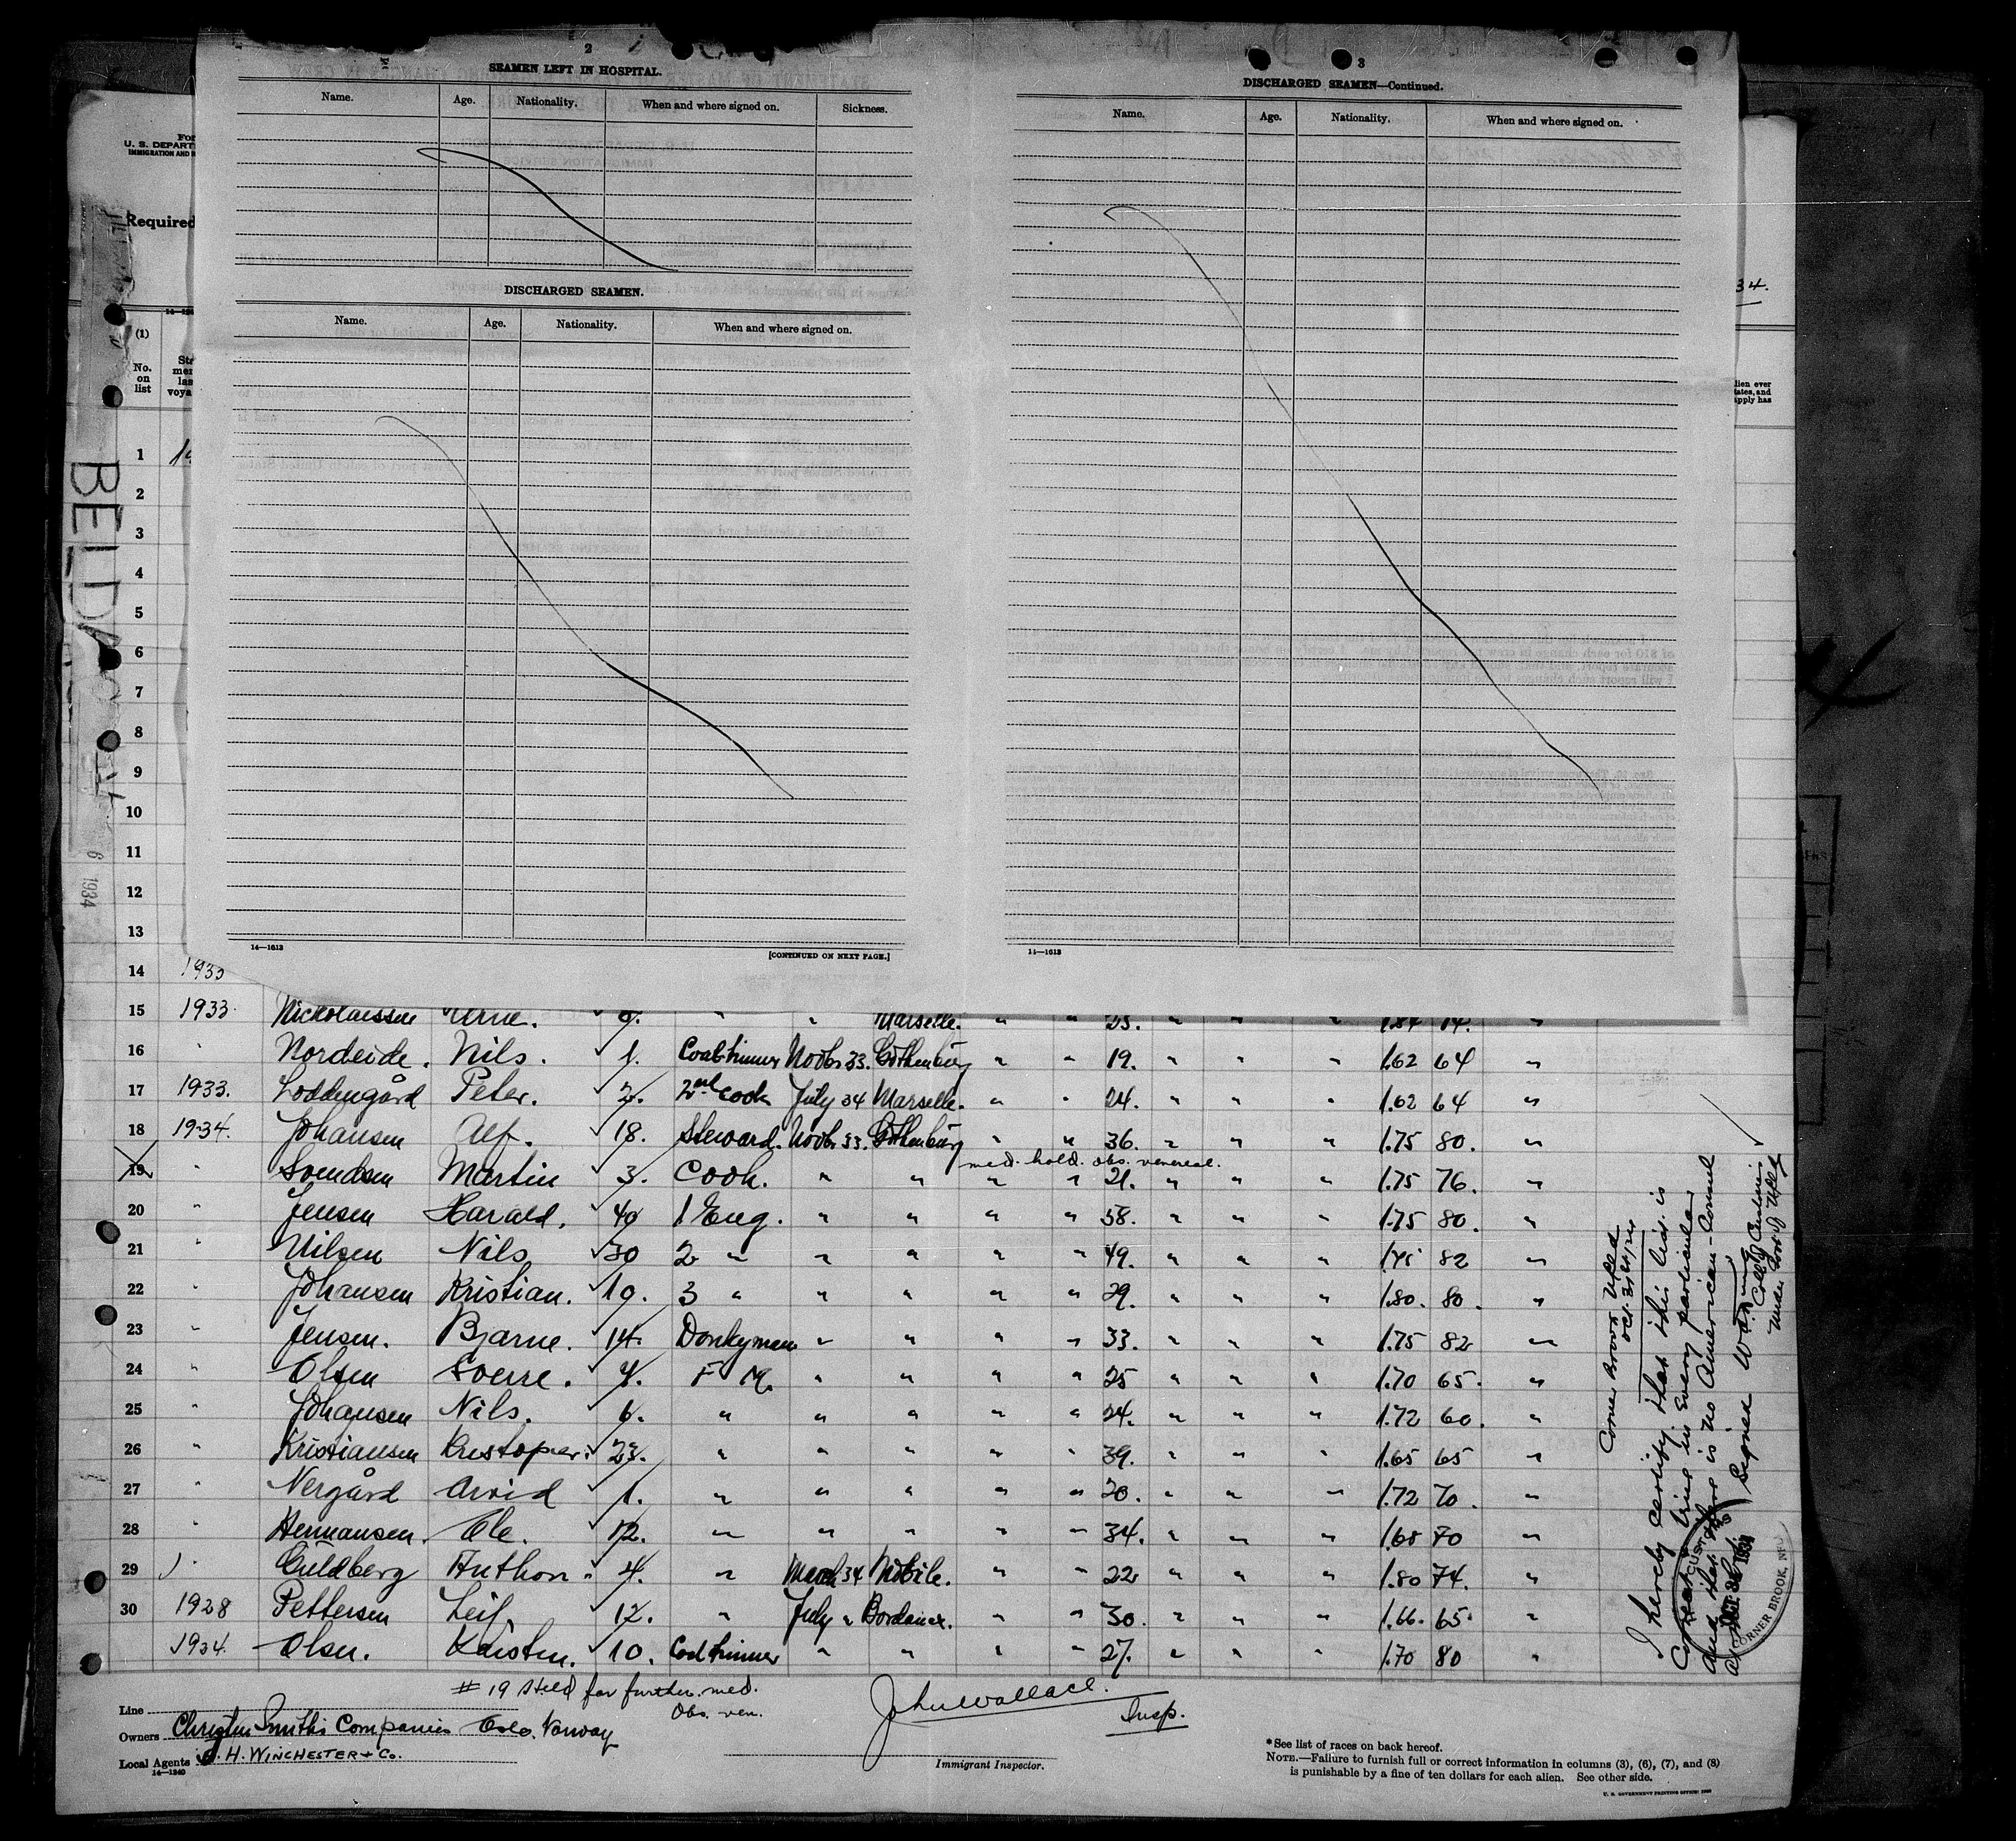 2
SEAMEN LEFT IN HOSPITAL.
Name. Age. Nationality. When and where signed on. Sickness.
DISCHARGED SEAMEN.
Name. Age. Nationality. When and where signed on.
14—1613 [CONTINUED ON NEXT PAGE.]
3
DISCHARGED SEAMEN—Continued.
Name. Age. Nationality. When and where signed on.
14—1613
U. S. DEPART
IMMIGRATION AND
Required
34.
(1)
No. on list
BELD
6 1934
1
2
3
4
5
6
7
8
9
10
11
12
13
14 1933
15 1933. Nickolaissen Arne. Marselle. " " 25. " " " 1.84 74. "
16 " Nordeide. Nils. ✓ 1. Coaltrimmer Novbr 33. Gothenburg " " 19. " " " 1.62 64 "
17 1933. Loddengård Peter. ✓ 2. 2nd Cook July 34 Marselle. " " 24. " " " 1.62 64 "
18 1934. Johansen Alf. ✓ 18. Steward. Novbr. 33. Gothenburg " " 36. " " " 1.75 80. "
med. hold. obs. venereal.
19 " Svendsen Martin ✓ 3. Cook. " " " " 21. " " " 1.75 76. "
20 " Jensen Harald. ✓ 40 1 Eng. " " " " 58. " " " 1.75 80. "
21 " Nilsen Nils ✓ 30 2 " " " " " 49. " " " 1.75 82 "
22 " Johansen Kristian. ✓ 19. 3 " " " " " 29. " " " 1.80. 80. "
23 " Jensen. Bjarne. ✓ 14. Donkeyman " " 33. " " " 1.75 82 "
24 " Olsen Sverre. ✓ 4. F M. " " " " 25 " " " 1.70 65. "
25 " Johansen Nils. ✓ 6. " " " " " 24. " " " 1.72 60. "
26 " Kristiansen Kristopher. ✓ 23. " " " " " 39. " " " 1.65 65 "
27 " Nergård Arvid ✓ 1. " " " " " 20. " " " 1.72 70. "
28 " Hermansen. Ole. ✓ 12. " " " " " 34. " " " 1.68 70 "
29 " Guldberg Anthon. ✓ 4. " March 34 Mobile. " " 22 " " " 1.80 74. "
30 1928 Pettersen Leif. ✓ 12. " July " Bordeaux. " " 30. " " " 1.66. 65. "
1934. Olsen. Karsten. ✓ 10. Coaltrimmer " " " " 27. " " " 1.70 80 "
# 19 Held for further med.
Obs. ven.
Line
Owners Christen Smiths Companies Oslo, Norway
Local Agents H. WINCHESTER & Co.
14—1240
John Wallace. Insp.
Immigrant Inspector.
*See list of races on back hereof.
NOTE.—Failure to furnish full or correct information in columns (3), (6), (7), and (8)
is punishable by a fine of ten dollars for each alien. See other side.
U. S. GOVERNMENT PRINTING OFFICE
Corner Brook Nfld
Oct. 31st,
I hereby certify that this list is
Correct & true in every particular
and that there is no American-Consul
Signed
CORNER BROOK, NFD